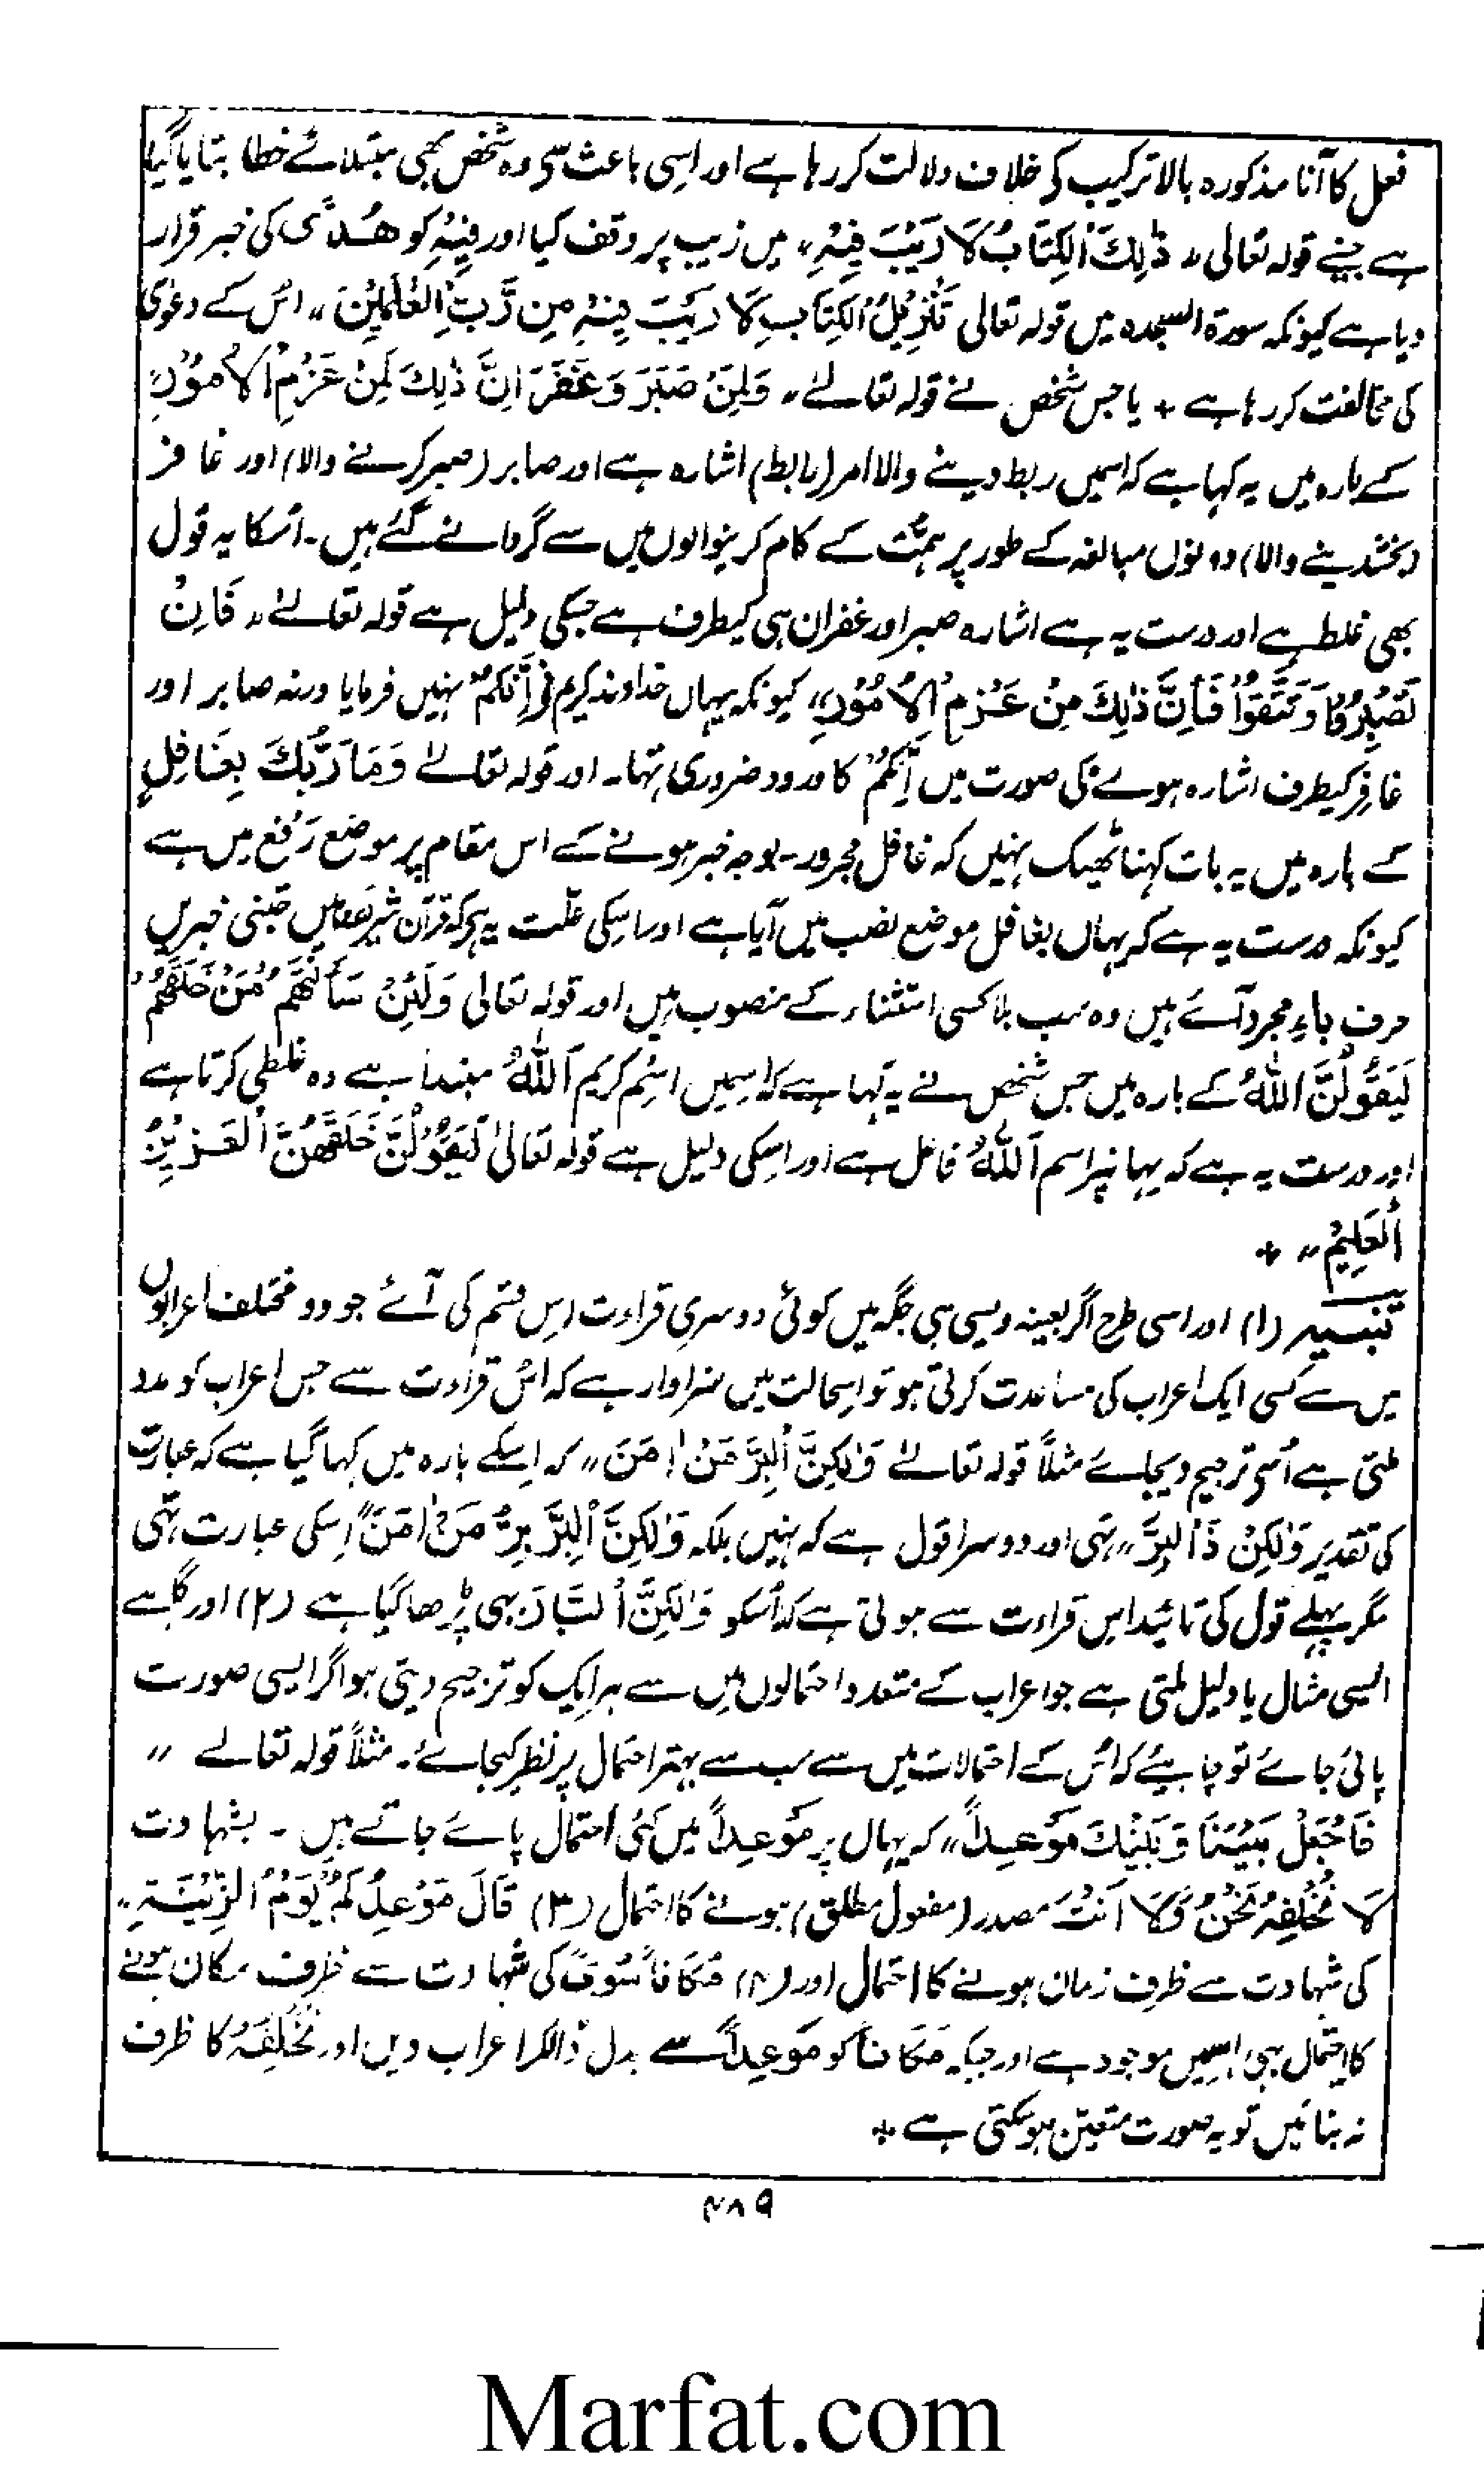 فعل کا آنا مذکورہ بالا ترکیب کے خلاف دلالت کر رہا ہے اور اسی باعث سے وہ شخص بھی مبتلائے خطا بتایا گیا
ہے جسنے قولہ تعالی " ذٰلِكَ الْكِتَابُ لَا رَيْبَ فِيْهِ " میں ریب پر وقف کیا اور فِيْهِ کو هُدًى کی خبر قرار
دیا ہے کیونکہ سورۃ السجدہ میں قولہ تعالی تَنْزِيْلُ الْكِتَابِ لَا رَيْبَ فِيْهِ مِن رَّبِّ الْعٰلَمِيْنَ " اس کے دعوٰی
کی مخالفت کر رہا ہے + یا جس شخص نے قولہ تعالےٰ " وَلَمَنْ صَبَرَ وَغَفَرَ اِنَّ ذٰلِكَ لَمِنْ عَزْمِ الْاُمُوْرِ "
کے بارہ میں یہ کہا ہے کہ اسمیں ربط دینے والا امر (رابط) اشارہ ہے اور صابر (صبر کرنے والا) اور غافر
(بخشدینے والا) دونوں مبالغہ کے طور پر ہمّت کے کام کرنیوالوں میں سے گردانے گئے ہیں۔ اُسکا یہ قول
بھی غلط ہے اور درست یہ ہے اشارہ صبر اور غفران ہی کیطرف ہے جسکی دلیل ہے قولہ تعالےٰ " فَاِنْ
تَصْبِرُوْا وَتَتَّقُوْا فَاِنَّ ذٰلِكَ مِنْ عَزْمِ الْاُمُوْرِ " کیونکہ یہاں خداوند کریم نے اِنَّكُمْ نہیں فرمایا ورنہ صابر اور
غافِر کیطرف اشارہ ہونے کی صورت میں اِنَّكُمْ کا ورود ضروری تہا۔ اور قولہ تعالےٰ وَمَا رَبُّكَ بِغَافِلٍ
کے بارہ میں یہ بات کہنا ٹھیک نہیں کہ غافل مجرور۔ بوجہ خبر ہونے کے اس مقام پر موضع رَفع میں ہے
کیونکہ درست یہ ہے کہ یہاں بغافل موضع نصب میں آیا ہے اور اسکی علّت یہ ہے کہ قرآن شریف میں جتنی خبریں
حرف باءِ مجرد آئے ہیں وہ سب بلا کسی استثناء کے منصوب ہیں اور قولہ تعالی وَلَئِنْ سَاَلْتَهُمْ مَنْ خَلَقَهُمْ
لَيَقُوْلُنَّ اللّٰهُ کے بارہ میں جس شخص نے یہ کہا ہے کہ اسمیں اسم کریم اَللّٰهُ مبتدا ہے وہ غلطی کرتا ہے
اور درست یہ ہے کہ یہانپر اسم اَللّٰهُ فاعل ہے اور اسکی دلیل ہے قولہ تعالیٰ لَيَقُوْلُنَّ خَلَقَهُنَّ الْعَزِيْزُ
الْعَلِيْمُ " +
تنبیہ (۱) اور اسی طرح اگر بعینہ ویسی ہی جگہ میں کوئی دوسری قراءت اِس قسم کی آئے جو دو مختلف اعرابوں
میں سے کسی ایک اعراب کی مساعدت کرتی ہو تو اسحالت میں سزاوار ہے کہ اُس قراءت سے جس اعراب کو مدد
ملتی ہے اُسے ترجیح دیجائے مثلاً قولہ تعالےٰ وَلٰكِنَّ الْبِرَّ مَنْ اٰمَنَ " کہ اِسکے بارہ میں کہا گیا ہے کہ عبارت
کی تقدیر وَلٰكِنْ ذَا الْبِرِّ " تہی اور دوسرا قول ہے کہ نہیں بلکہ وَلٰكِنَّ الْبِرَّ بِرُّ مَنْ اٰمَنَ " اِسکی عبارت تہی
مگر پہلے قول کی تائید اس قراءت سے ہوتی ہے کہ اُسکو وَلٰكِنَّ الْبَارَّ بہی پڑھا گیا ہے (۲) اور گاہے
ایسی مثال یا دلیل ملتی ہے جو اعراب کے متعدد احتمالوں میں سے ہر ایک کو ترجیح دیتی ہو اگر ایسی صورت
پائی جائے تو چاہیئے کہ اُس کے احتمالات میں سے سب سے بہتر احتمال پر نظر کیجائے۔ مثلاً قولہ تعالےٰ "
فَاجْعَلْ بَيْنَنَا وَبَيْنَكَ مَوْعِداً " کہ یہاں پر مَوْعِداً میں کئی احتمال پائے جاتے ہیں ۔ بشہادت
لَا نُخْلِفُهٗ نَحْنُ وَلَا اَنْتَ مصدر (مفعول مطلق) ہونے کا احتمال (۳) قَالَ مَوْعِدُكُمْ يَوْمُ الزِّيْنَةِ "
کی شہادت سے ظرفِ زمان ہونے کا احتمال اور (۴) مَكَاناً سُوًى کی شہادت سے ظرفِ مکان ہونے
کا احتمال بہی اسمیں موجود ہے اور جبکہ مَكَاناً کو مَوْعِداً سے بدل ڈالکر اعراب دیں اور نُخْلِفُهٗ کا ظرف
نہ بنائیں تو یہ صورت متعیّن ہو سکتی ہے +
۴۸۹
Marfat.com